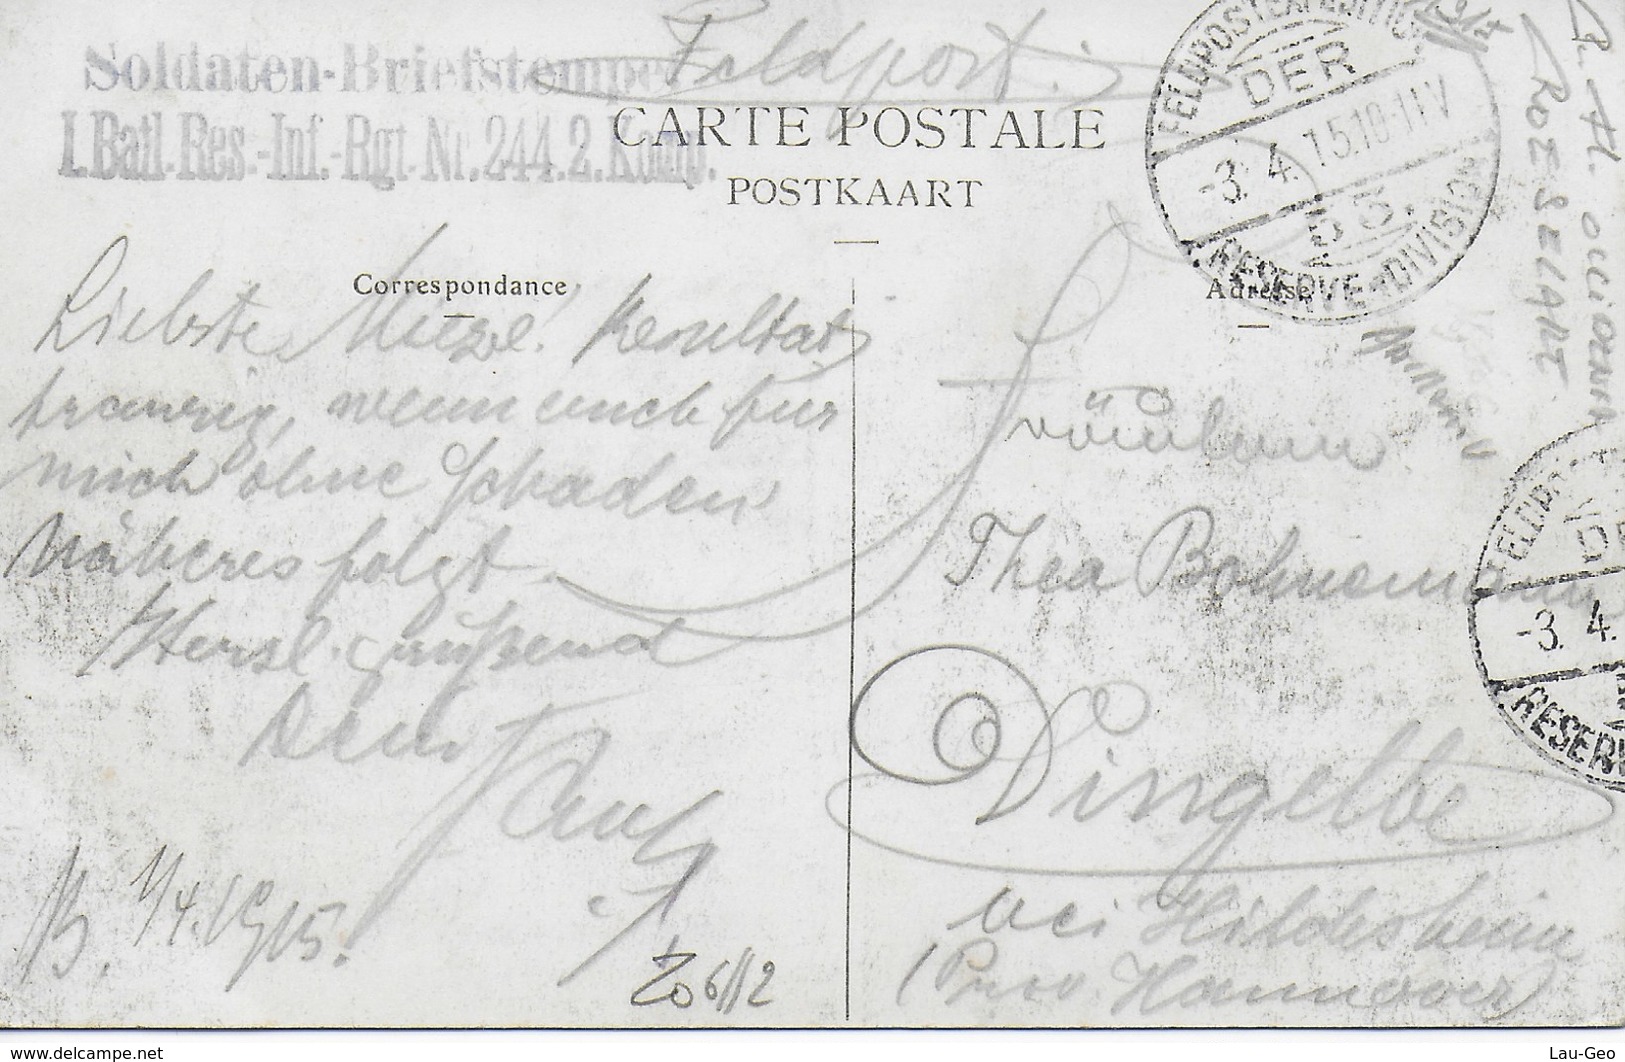 Feldpost.
Soldaten-Briefstempel
I. Batl. Res.-Inf.-Rgt. Nr. 244. 2. Komp.
CARTE POSTALE
POSTKAART
FELDPOSTEXPEDITION
DER
-3. 4. 15. 10-11 V
53.
RESERVE-DIVISION
ROZEBELARE
Correspondance
Adresse
Liebste Miezel! Resultat
traurig, wenn auch für
mich ohne Schaden
Näheres folgt.
Herzl. grüßend
Dein
B. 1/4. 1915.
Fräulein
Thea Bohnemann
Dingelbe
bei Hildesheim
(Prov. Hannover)
FELDPOST
DE
-3. 4.
RESERV
delcampe.net
Lau-Geo